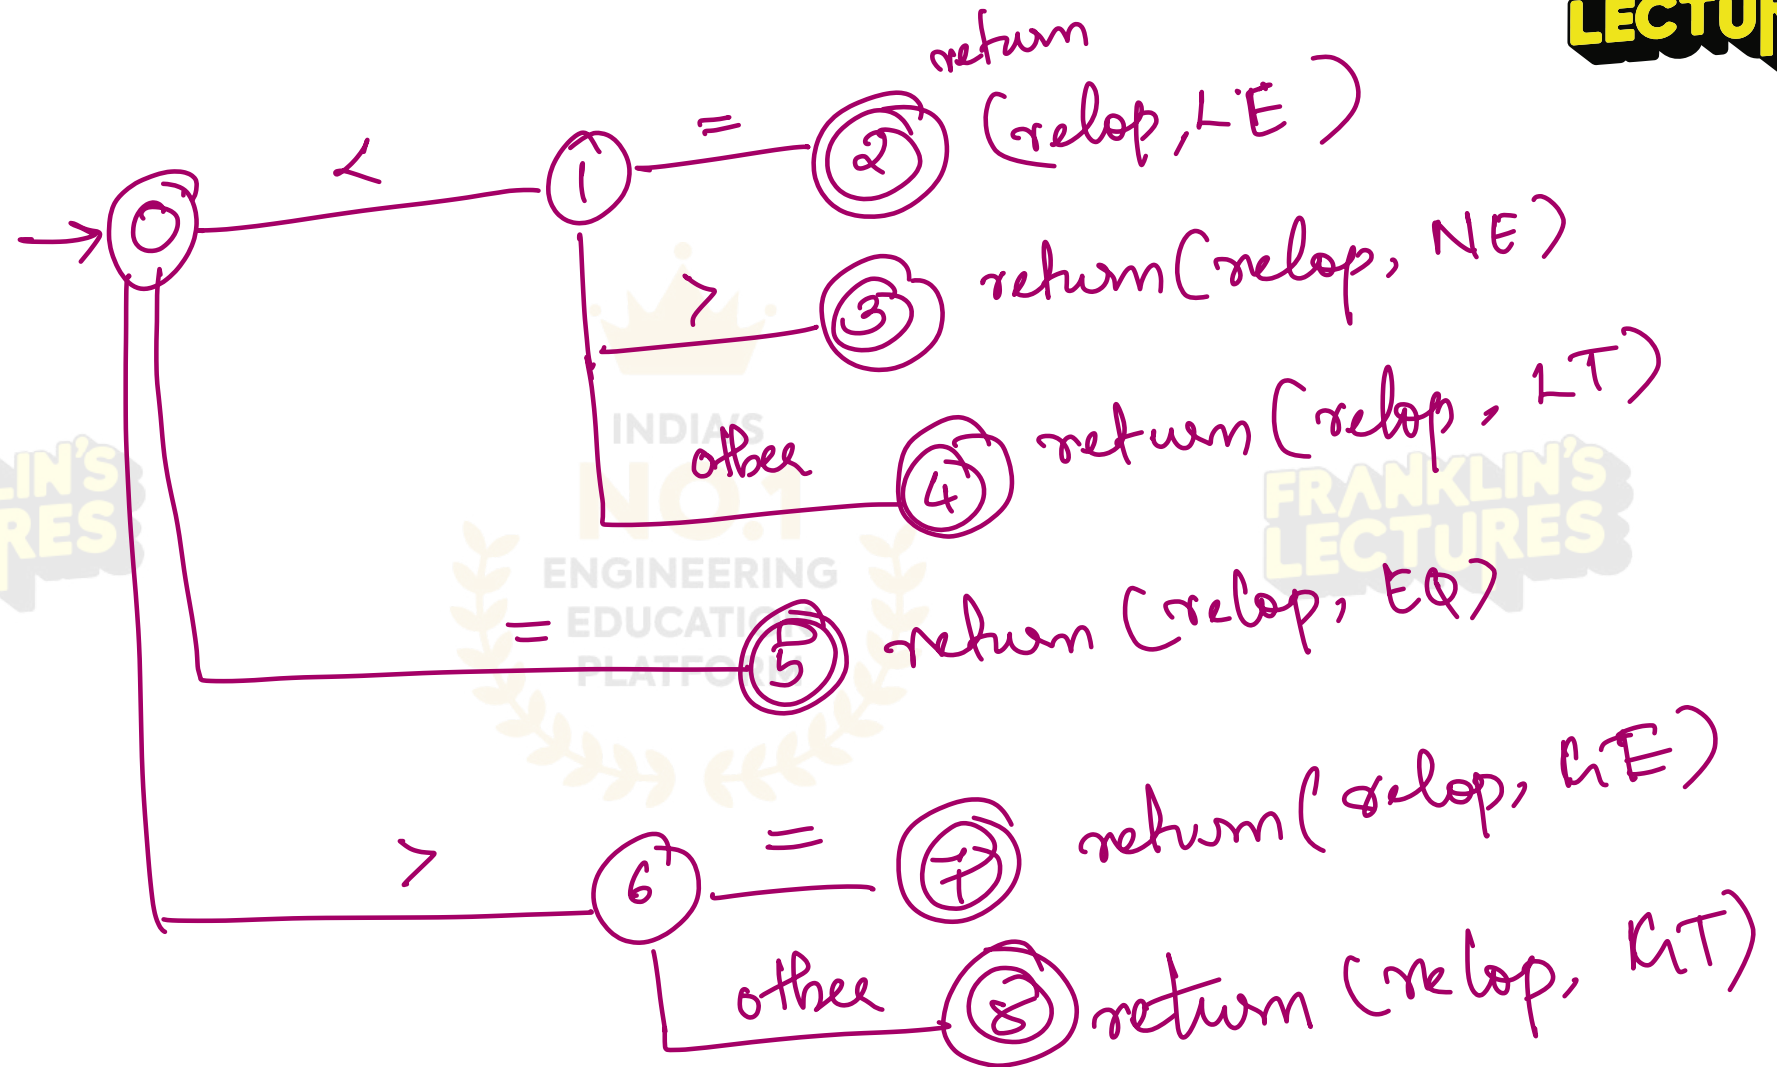 LECTUR
return
< 1 = 2 (relop, LE)
0
> 3 return(relop, NE)
other 4 return(relop, LT)
= 5 return(relop, EQ)
> 6 = 7 return(relop, GE)
other 8 return(relop, GT)
INDIA'S
NO.1
ENGINEERING
EDUCATION
PLATFORM
LIN'S
RES
FRANKLIN'S
LECTURES